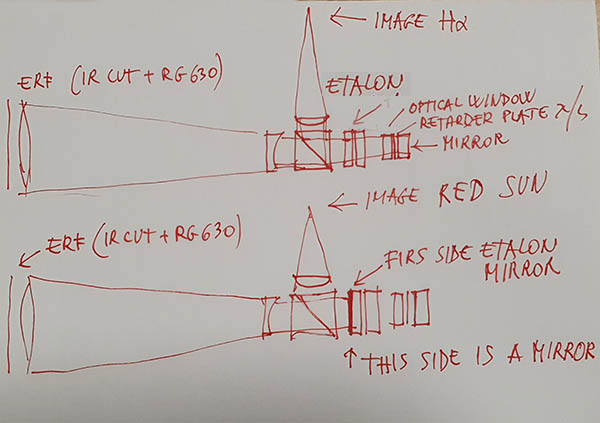 IMAGE Hα
ERF (IR CUT + RG630)
ETALON
OPTICAL WINDOW
RETARDER PLATE λ/4
MIRROR
IMAGE RED SUN
ERF (IR CUT + RG630)
FIRS SIDE ETALON
MIRROR
THIS SIDE IS A MIRROR